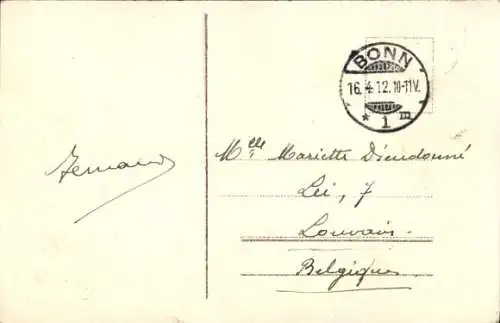 BONN
16.4.12.10-11V.
* 1 m
Fernand
Mlle Mariette Dieudonné
Lei, 7
Louvain.
Belgique